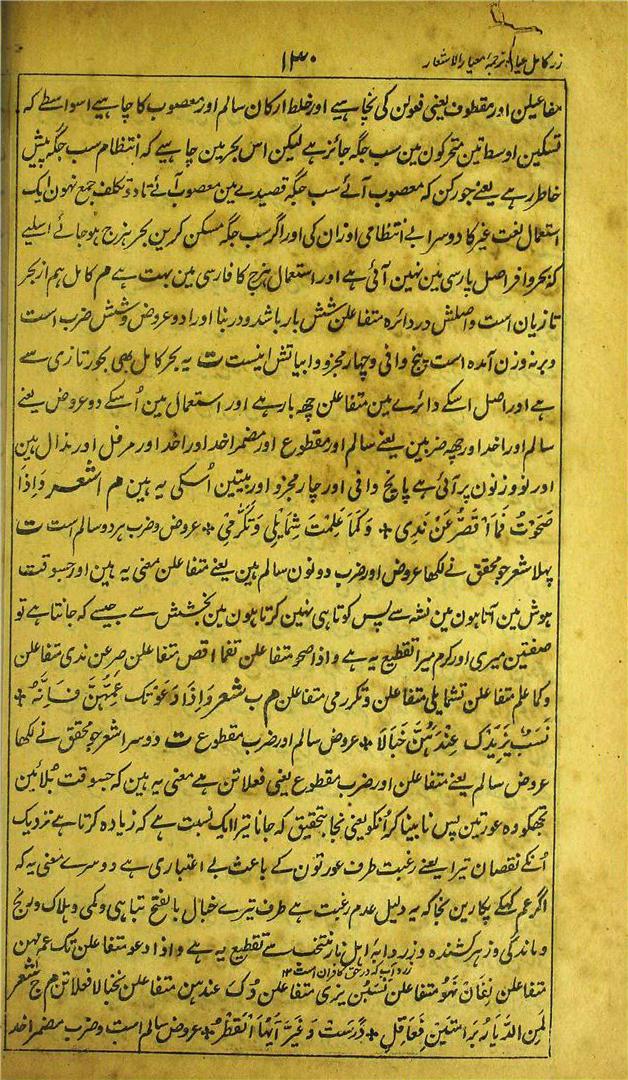 زر کامل عیار ترجمۂ معیار الاشعار
۱۳۰
مفاعیلن اور مقطوف یعنی فعولن کی نچاہیے اور خلط ارکان سالم اور معصوب کا چاہیے اسواسطے کہ
تسکین اوسط تین متحرکون مین سب جگہ جائز ہے لیکن اس بحر مین چاہیے کہ انتظام سب جگہ پیش
خاطر رہے یعنے جو رکن کہ معصوب آئے سب جگہ قصیدے مین معصوب آئے تا دو تکلف جمع نہون ایک
استعمال لغت غیر کا دوسرا بے انتظامی اوزان کی اور اگر سب جگہ مسکن کرین بحر ہزج ہوجائے اسلیے
کہ بحر وافر اصل پارسی مین نہین آئی ہے اور استعمال ہزج کا فارسی مین بہت ہے م کامل ہم از بحر
تازیان است و اصلش در دائرہ متفاعلن شش بار باشد و در بنا اورا دو عروض و شش ضرب است
و بر نہ وزن آمدہ است پنج وافی و چہار مجزو و ابیاتش اینست ت یہ بحر کامل بھی بحور تازی سے
ہے اور اصل اسکے دائرے مین متفاعلن چھ بار ہے اور استعمال مین اُسکے دو عروض یعنے
سالم اور احذ اور چھ ضربین یعنے سالم اور مقطوع اور مضمر احذ اور احذ اور مرفل اور مذال ہین
اور نو وزنون پر آئی ہے پانچ وافی اور چار مجزو اور بیتین اُسکی یہ ہین م ا شعر وَاِذَا
صَحَوْتُ فَمَا اُقَصِّرُ عَنْ نَدِی ✤ وَکَمَا عَلِمْتَ شَمَایِلِی وَتَکَرُّمِیْ ✤ عروض و ضرب ہر دو سالم است ت
پہلا شعر جو محقق نے لکھا عروض اور ضرب دونون سالم ہین یعنے متفاعلن معنی یہ ہین اور جسوقت
ہوش مین آتا ہون مین نشہ سے پس کوتاہی نہین کرتا ہون مین بخشش سے جیسے کہ جانتا ہے تو
صفتین میری اور کرم میرا تقطیع یہ ہے و اذا صحو متفاعلن تفما اقص متفاعلن صرعن ندی متفاعلن
وکما علم متفاعلن تشمایلی متفاعلن و تکررمی متفاعلن م ب شعر وَاِذَا دَعَوْنَکَ عَمَّهُنَّ فَاِنَّهٗ ✤
نَسَبٌ یَزِیْدُکَ عِنْدَهُنَّ خَبَالَا ✤ عروض سالم اور ضرب مقطوع ت دوسرا شعر جو محقق نے لکھا
عروض سالم یعنے متفاعلن اور ضرب مقطوع یعنی فعلاتن ہے معنی یہ ہین کہ جسوقت بُلائین
تجھکو وہ عورتین پس نابینا کہ اُنکو یعنی نجا بتحقیق کہ جانا تیرا ایک نسبت ہے کہ زیادہ کرتا ہے نزدیک
اُنکے نقصان تیرا یعنے رغبت طرف عورتون کے باعث بے اعتباری ہے دوسرے معنی یہ کہ
اگر عم کہکے پکارین نجا کہ یہ دلیل عدم رغبت ہے طرف تیرے خبال بالفتح تباہی و کمی و ہلاک و رنج
و ماندگی و زہر کشندہ و زردابۂ اہل نار منتخب سے تقطیع یہ ہے و اذا دعو متفاعلن تک عمہن
زرد آب کہ در حق کافران است ۱۲
متفاعلن نفان نہو متفاعلن نسبن یزی متفاعلن دک عندہن متفاعلن نخبالا فعلاتن م ج شعر
لِمَنِ الدِّیَارُ بِرَامَتَیْنِ فَعَاقِلِ ✤ دَرَسَتْ وَغَیَّرَ آیَهَا الْقَطْرُ ✤ عروض سالم است و ضرب مضمر احذ